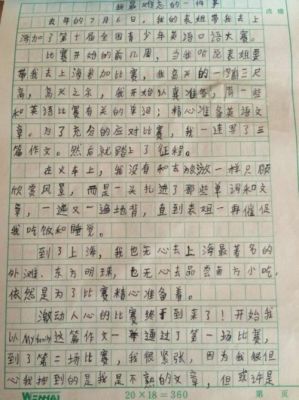 我最难忘的一件事
去年的7月6日，我的表姐带我去上
海加了第十届全国青少年英语口语大赛。
比赛开始的前几周，当我听说表姐要
带我去上海参加比赛，我高兴的一蹦三尺
高，高兴之余，我开始认真准备，背一些
和英语比赛有关的单词；精心准备英语文
章。为了充分的应对比赛，我一连写了三
篇作文。然后就踏上了征程。
在火车上，我没有和去旅游一样只顾
欣赏风景，而是一头扎进了那些单词和文
章，一遍又一遍地背，直到表姐一再催促
我吃饭和睡觉。
到了上海，我也无心去上海最著名的
外滩、东方明珠，也无心去品尝南方小吃，
依然是为了比赛精心准备着。
激动人心的比赛终于到来了！开始我
以My family这篇作文一举通过了第一场比赛，
到了第二场比赛，我很紧张，因为我很担
心我抽到的是我是不熟的文章，但或许是
20×18=360
第 页